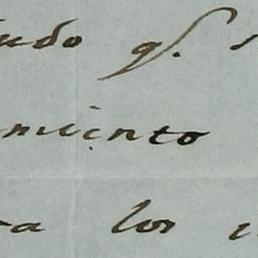 udo q.
miento
a los